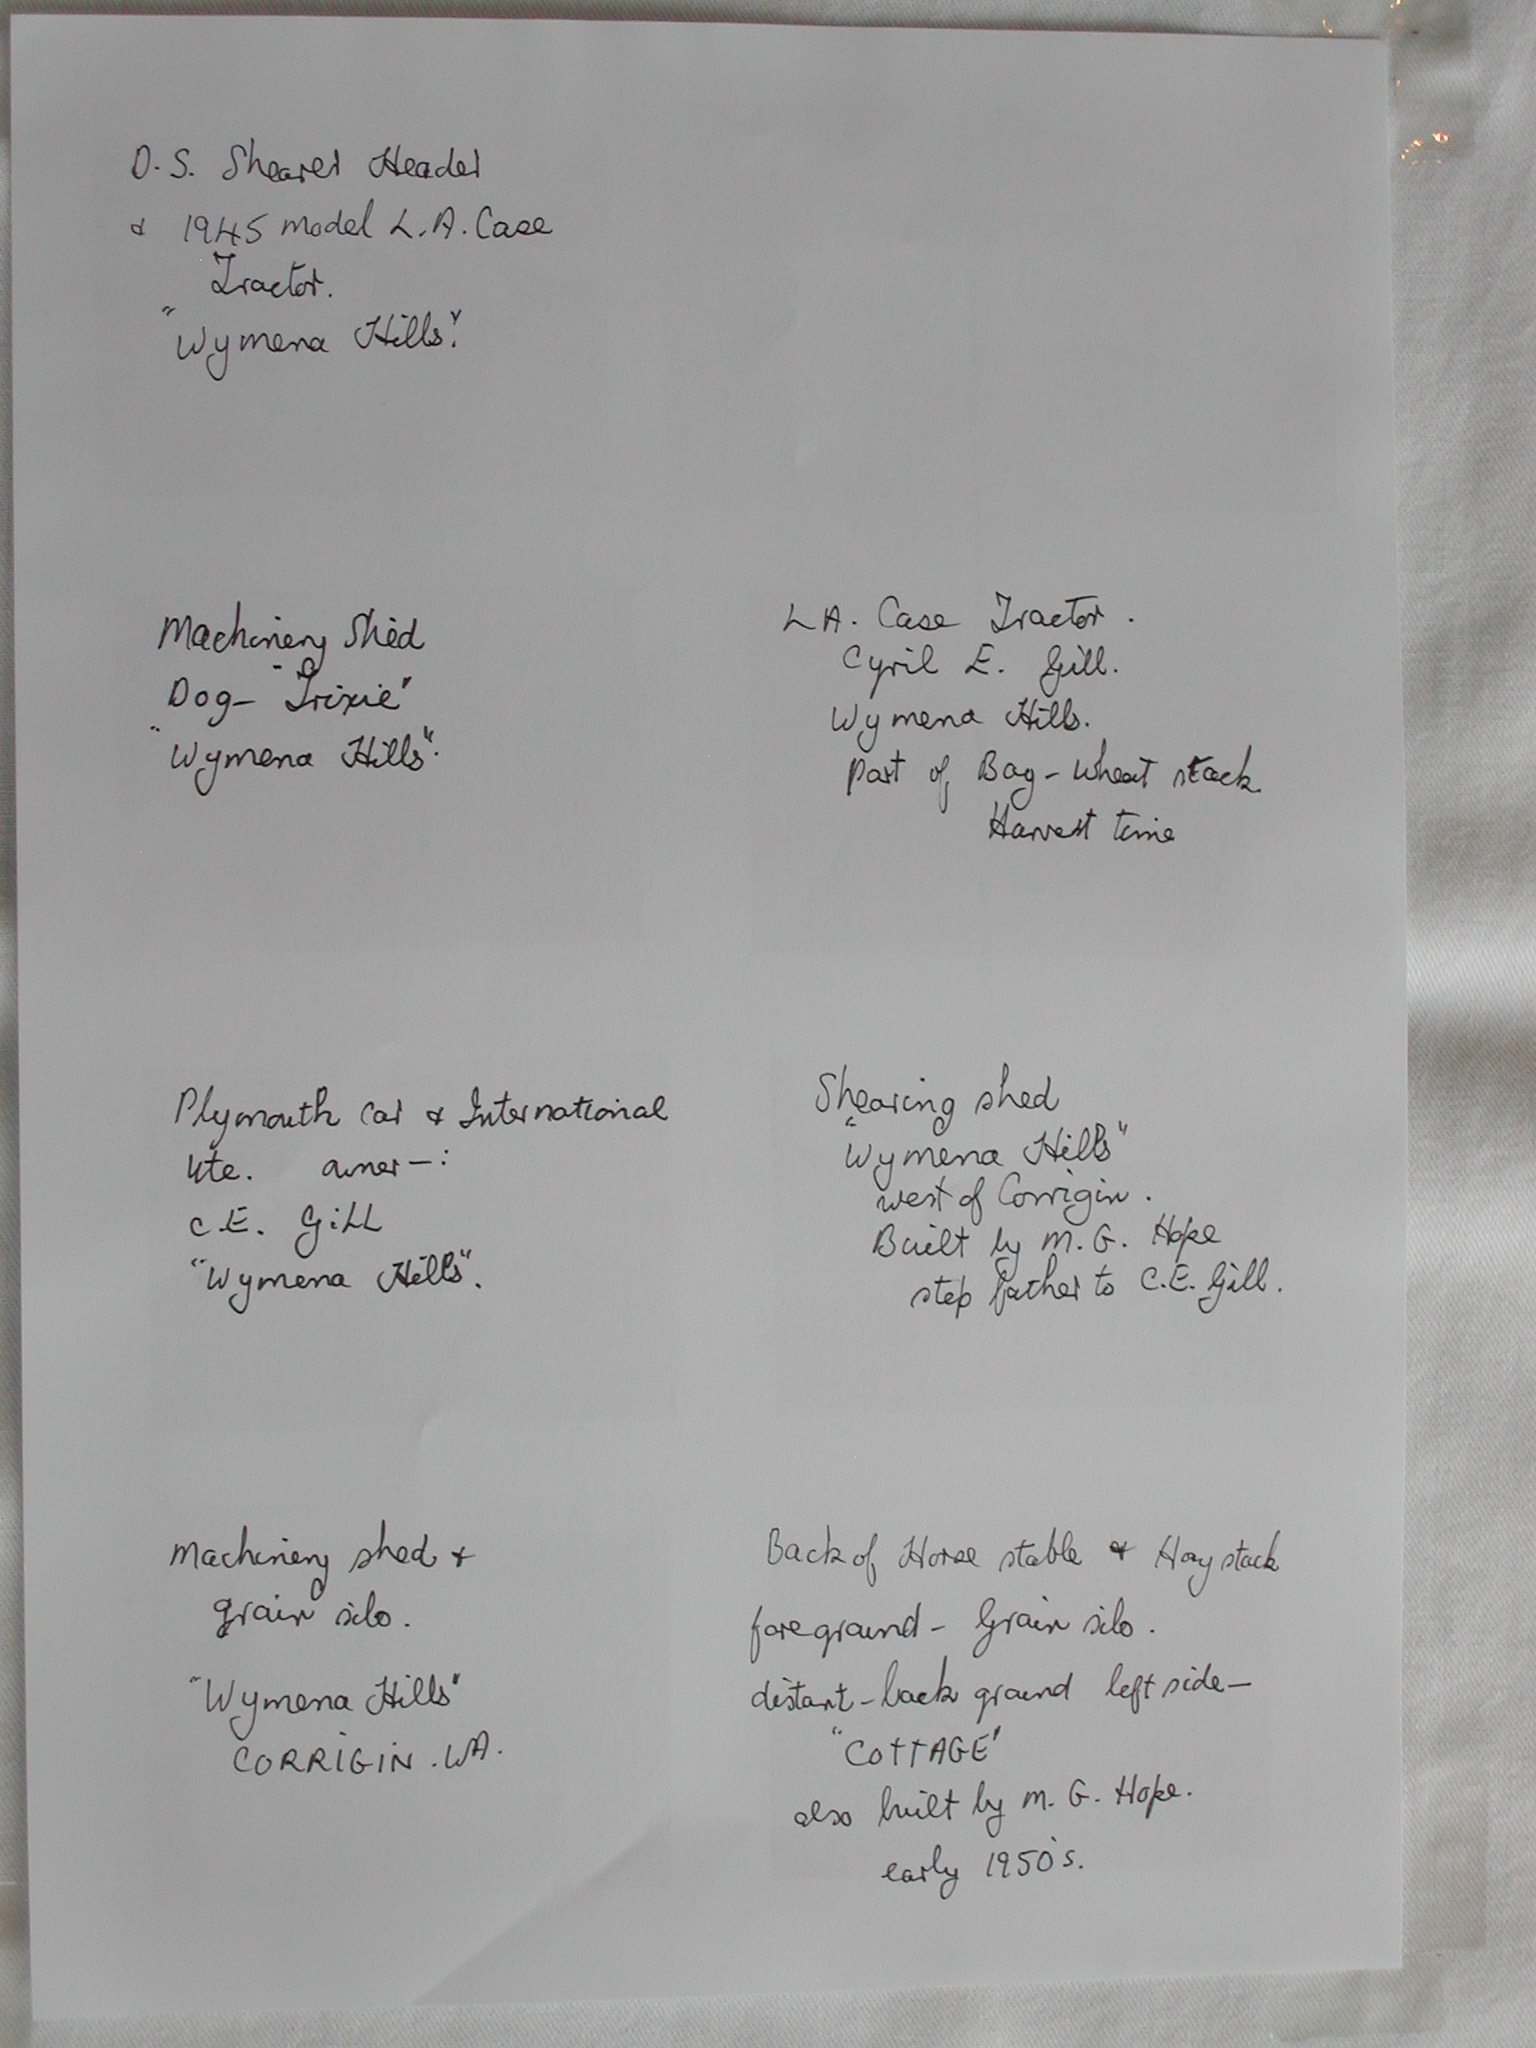 D. S. Shearer Header
& 1945 model L. A. Case
Tractor.
"Wymena Hills".
Machinery Shed
Dog- "Trixie"
"Wymena Hills".
L A. Case Tractor.
Cyril E. Gill.
Wymena Hills.
Part of Bag-Wheat stack.
Harvest time
Plymouth Car & International
Ute. owner-:
C.E. Gill
"Wymena Hills".
Shearing shed
"Wymena Hills"
west of Corrigin.
Built by M. G. Hope
step father to C.E. Gill.
Machinery shed &
grain silo.
"Wymena Hills"
CORRIGIN. WA.
Back of Horse stable & Hay stack
foreground - Grain silo.
distant-back ground left side-
"COTTAGE"
also built by M. G. Hope.
early 1950's.